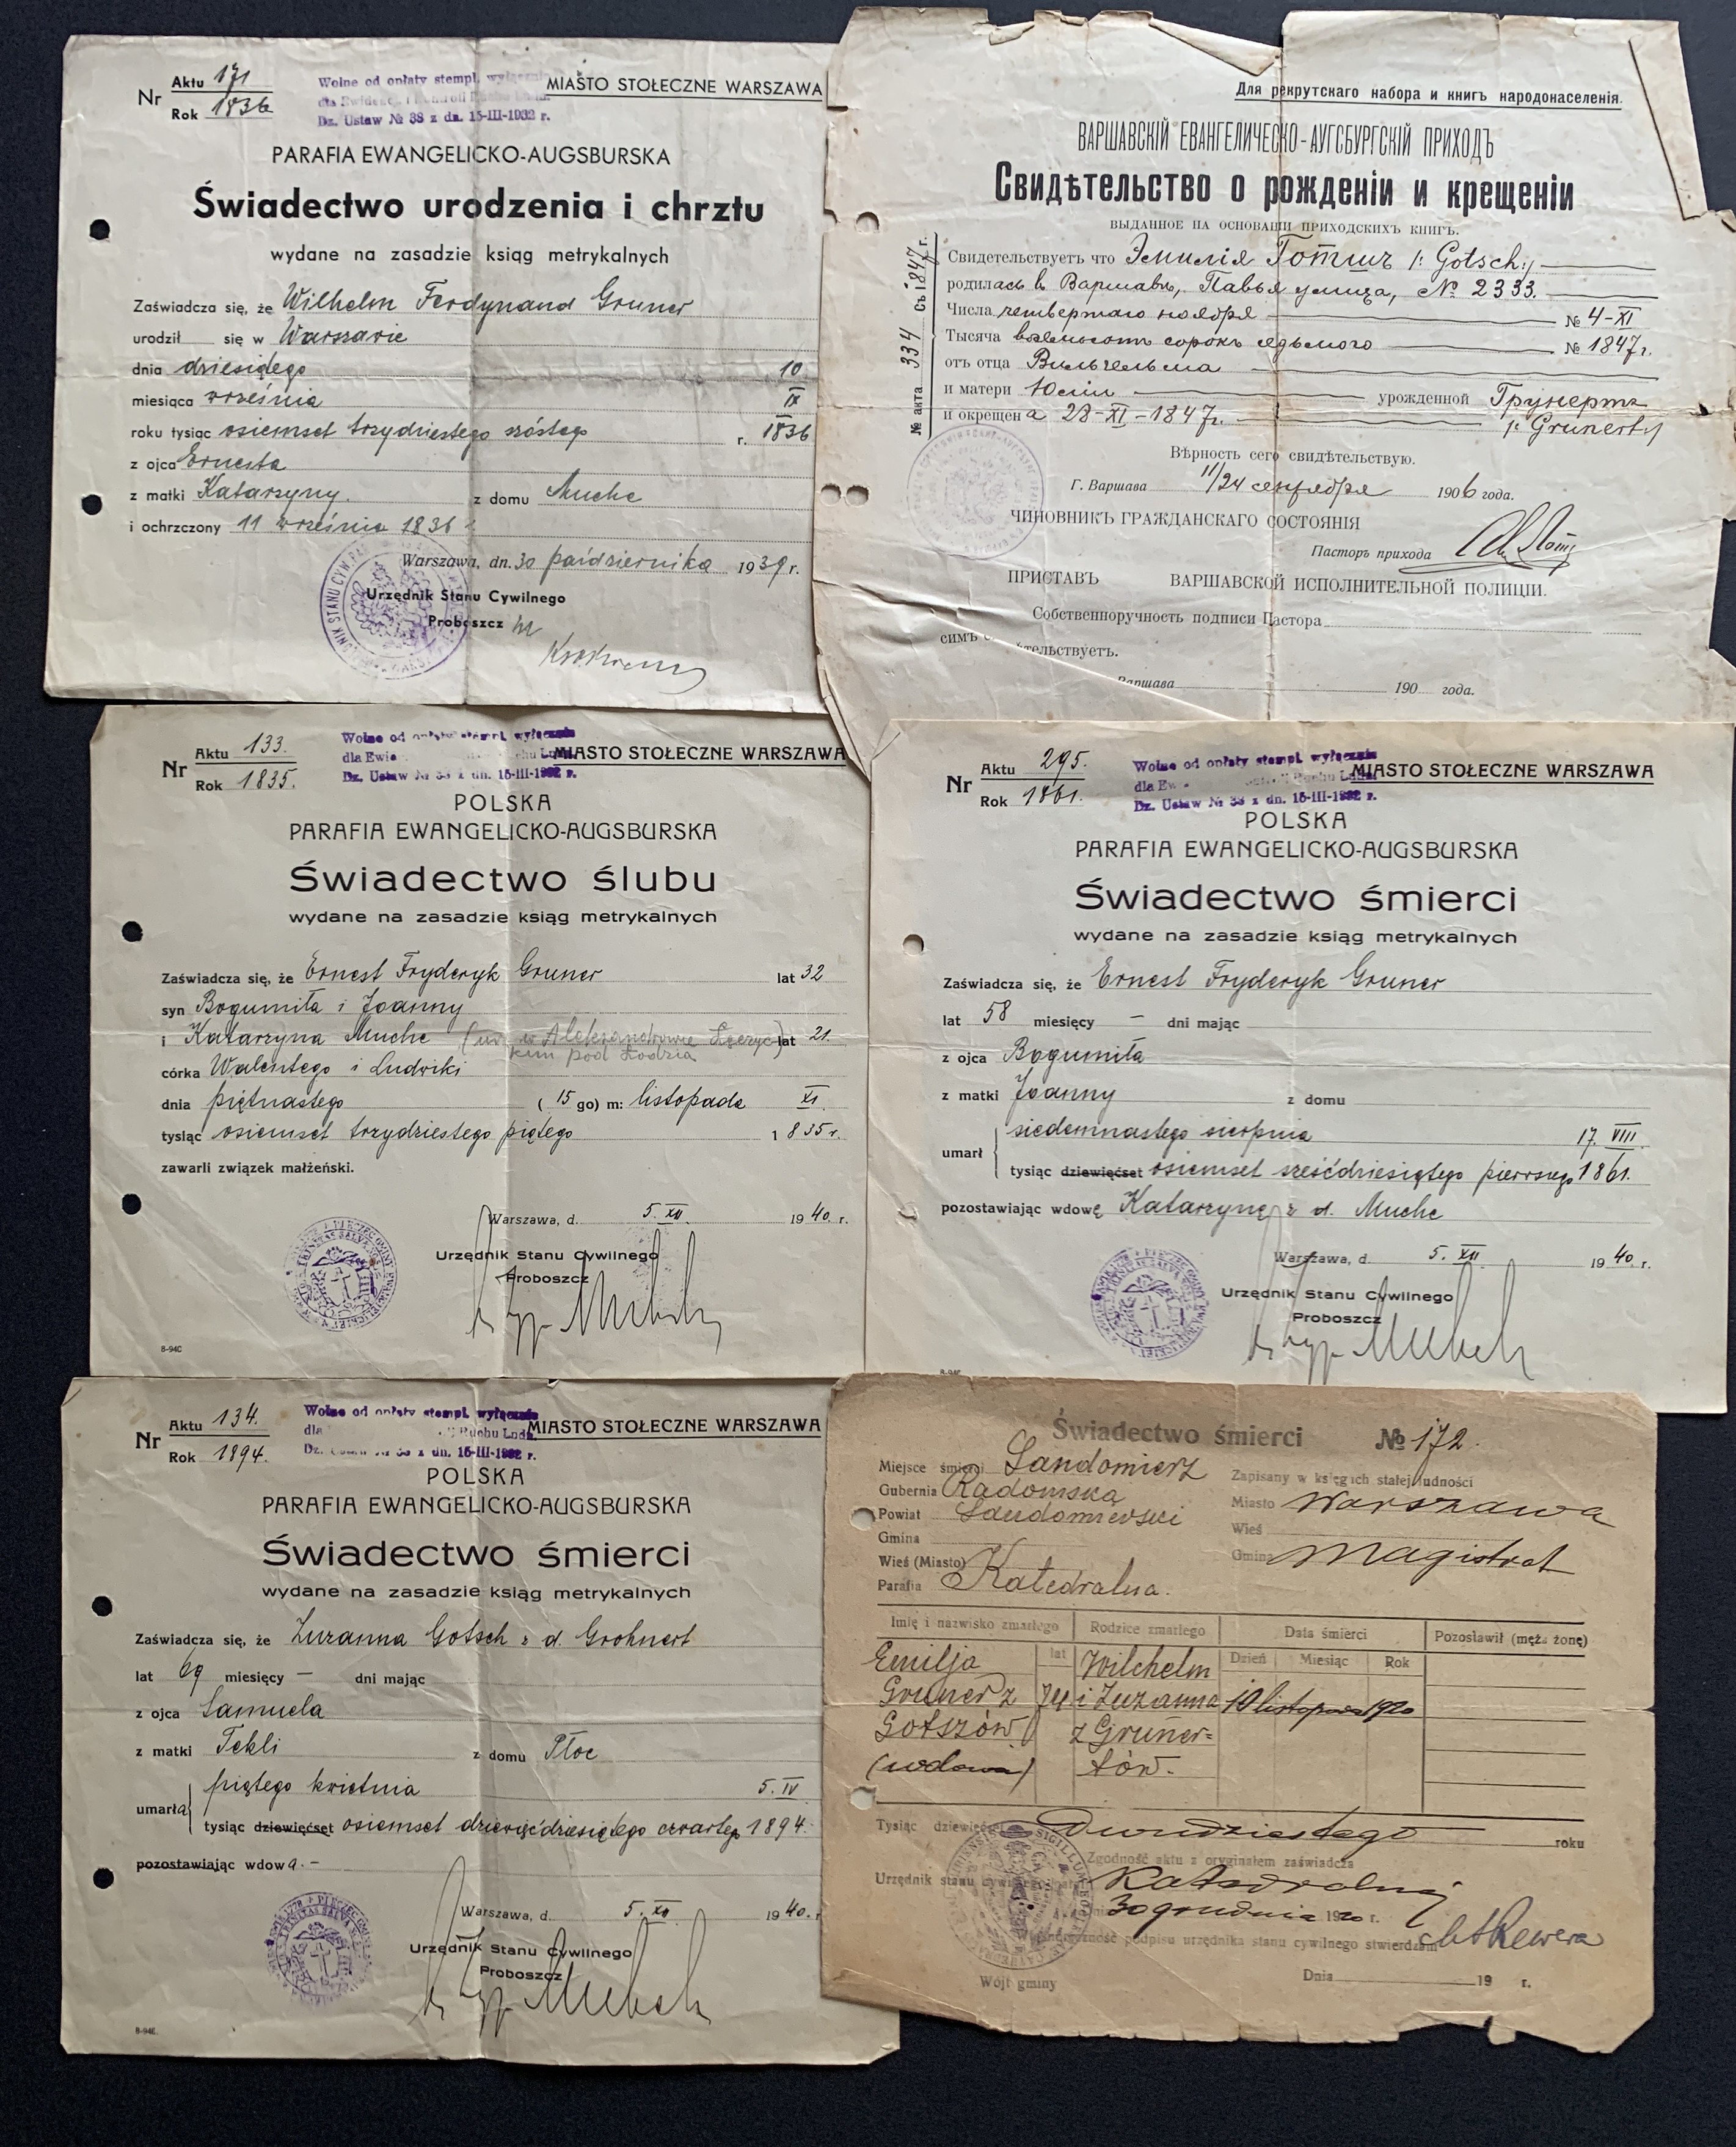 Nr Aktu 171
Rok 1836
Wolne od opłaty stempl. wyłącznie
dla Ewidencji i Kontroli Ruchu Ludn.
Dz. Ustaw № 38 z dn. 15-III-1932 r.
MIASTO STOŁECZNE WARSZAWA
PARAFIA EWANGELICKO-AUGSBURSKA
Świadectwo urodzenia i chrztu
wydane na zasadzie ksiąg metrykalnych
Zaświadcza się, że Wilhelm Ferdynand Gruner
urodził się w Warszawie
dnia dziesiątego 10
miesiąca września IX
roku tysiąc osiemset trzydziestego szóstego r. 1836
z ojca Ernesta
z matki Katarzyny. z domu Muche
i ochrzczony 11 września 1836 r
Warszawa, dn. 30 października 1939 r.
Urzędnik Stanu Cywilnego
Proboszcz
Для рекрутскаго набора и книгъ народонаселенія.
ВАРШАВСКІЙ ЕВАНГЕЛИЧЕСКО-АУГСБУРГСКІЙ ПРИХОДЪ
Свидѣтельство о рожденіи и крещеніи
ВЫДАННОЕ НА ОСНОВАНІИ ПРИХОДСКИХЪ КНИГЪ.
№ акта 334 съ 1847 г.
Свидетельствуетъ что Эмилія Готшъ /: Gotsch :/
родилась въ Варшавѣ, Павья улица, № 2333.
Числа четвертаго ноября № 4-XI
Тысяча восемьсотъ сорокъ седьмого № 1847 г.
отъ отца Вильгельма
и матери Юліи урожденной Грунертъ
и окрещена 28-XI-1847 г. /: Grunert :/
Вѣрность сего свидѣтельствую.
Г. Варшава 11/24 сентября 1906 года.
ЧИНОВНИКЪ ГРАЖДАНСКАГО СОСТОЯНІЯ
Пасторъ прихода
ПРИСТАВЪ ВАРШАВСКОЙ ИСПОЛНИТЕЛЬНОЙ ПОЛИЦІИ.
Собственноручность подписи Пастора
симъ
тельствуетъ.
Варшава 190 года.
Nr Aktu 133.
Rok 1835.
Wolne od opłaty stempl. wyłącznie
dla Ewi
Dz. Ustaw № 38 z dn. 15-III-1932 r.
MIASTO STOŁECZNE WARSZAWA
POLSKA
PARAFIA EWANGELICKO-AUGSBURSKA
Świadectwo ślubu
wydane na zasadzie ksiąg metrykalnych
Zaświadcza się, że Ernest Fryderyk Gruner lat 32
syn Bogumiła i Joanny
i Katarzyna Muche (ur. w Aleksandrowie Łęczyc- lat 21.
kim pod Łodzią)
córka Walentego i Ludwiki
dnia piętnastego (15 go) m: listopada XI.
tysiąc osiemset trzydziestego piątego 1835 r.
zawarli związek małżeński.
Warszawa, d. 5. XII. 1940. r.
Urzędnik Stanu Cywilnego
Proboszcz
8-94C
Nr Aktu 295.
Rok 1861.
Wolne od opłaty stempl. wyłącznie
Dz. Ustaw № 38 z dn. 15-III-1932 r.
MIASTO STOŁECZNE WARSZAWA
POLSKA
PARAFIA EWANGELICKO-AUGSBURSKA
Świadectwo śmierci
wydane na zasadzie ksiąg metrykalnych
Zaświadcza się, że Ernest Fryderyk Gruner
lat 58 miesięcy — dni mając
z ojca Bogumiła
z matki Joanny z domu
umarł siedemnastego sierpnia 17. VIII.
tysiąc dziewięćset osiemset sześćdziesiątego pierwszego 1861.
pozostawiając wdowę Katarzynę z d. Muche
Warszawa, d. 5. XII. 1940. r.
Urzędnik Stanu Cywilnego
Proboszcz
Nr Aktu 134.
Rok 1894.
Wolne od opłaty stempl. wyłącznie
dla Ruchu Ludn.
Dz. Ustaw № 38 z dn. 15-III-1932 r.
MIASTO STOŁECZNE WARSZAWA
POLSKA
PARAFIA EWANGELICKO-AUGSBURSKA
Świadectwo śmierci
wydane na zasadzie ksiąg metrykalnych
Zaświadcza się, że Zuzanna Gotsch z d. Grohnert
lat 69 miesięcy — dni mając
z ojca Samuela
z matki Tekli z domu Ptoc
umarła piątego kwietnia 5. IV
tysiąc dziewięćset osiemset dziewięćdziesiątego czwartego 1894.
pozostawiając wdowa. -
Warszawa, d. 5. XII. 1940. r
Urzędnik Stanu Cywilnego
Proboszcz
8-94E.
Świadectwo śmierci № 172.
Miejsce śmierci Sandomierz
Gubernia Radomska
Powiat Sandomierski
Gmina
Wieś (Miasto)
Parafia Katedralna.
Zapisany w księgach stałej ludności
Miasto Warszawa
Wieś
Gmina Magistrat
Imię i nazwisko zmarłego lat Rodzice zmarłego Data śmierci Pozostawił (męża żonę)
Dzień Miesiąc Rok
Emilja Wilchelm
Gruner z 74 i Zuzanna 10 listopada 1920
Gotszów z Gruner=
(wdowa) tów.
Tysiąc dziewięćset Dwudziestego roku
Zgodność aktu z oryginałem zaświadcza
Urzędnik stanu cywilnego parafji Katedralnej
dnia 30 grudnia 1920 r.
Własnoręczność podpisu urzędnika stanu cywilnego stwierdzam
Wójt gminy Dnia 19 r.